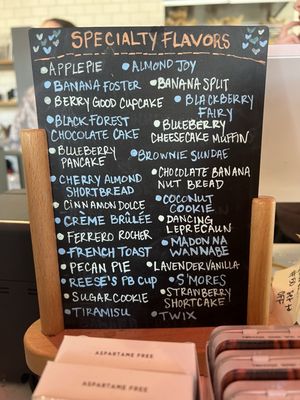 SPECIALTY FLAVORS
APPLE PIE
BANANA FOSTER
BERRY GOOD CUPCAKE
BLACK FOREST
CHOCOLATE CAKE
BLUEBERRY
PANCAKE
CHERRY ALMOND
SHORTBREAD
CINNAMON DOLCE
CRÈME BRÛLÉE
FERRERO ROCHER
FRENCH TOAST
PECAN PIE
REESE'S PB CUP
SUGAR COOKIE
TIRAMISU
ALMOND JOY
BANANA SPLIT
BLACKBERRY
FAIRY
BLUEBERRY
CHEESECAKE MUFFIN
BROWNIE SUNDAE
CHOCOLATE BANANA
NUT BREAD
COCONUT
COOKIE
DANCING
LEPRECAUN
MADONNA
WANNABE
LAVENDER VANILLA
S'MORES
STRAWBERRY
SHORTCAKE
TWIX
ASPARTAME FREE
ASPARTAME FREE